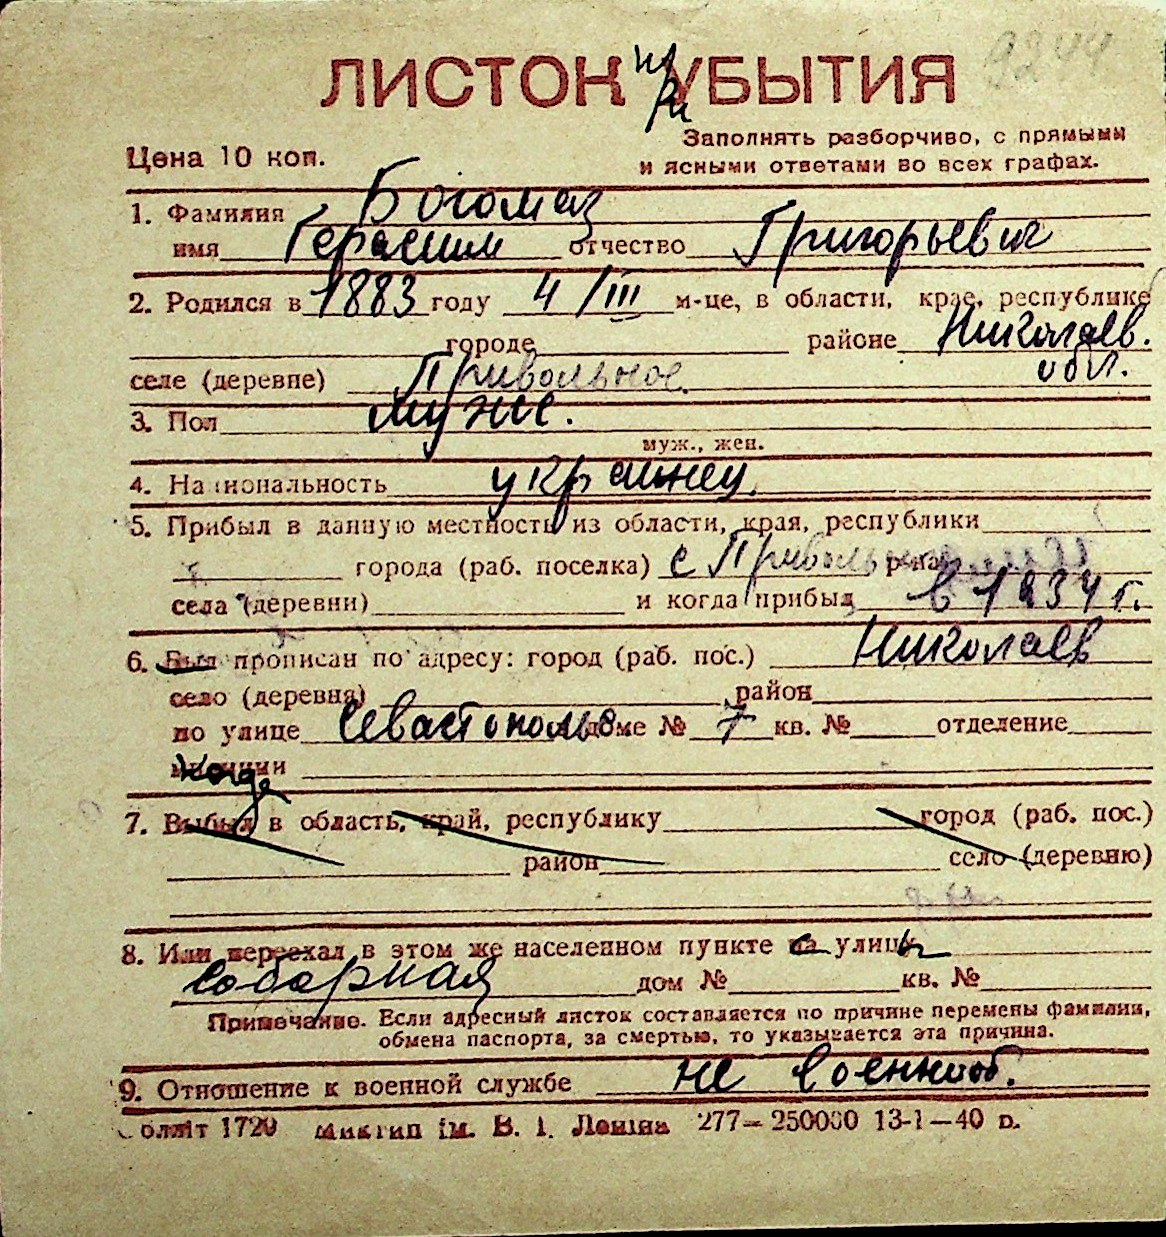 9244
ЛИСТОК при УБЫТИЯ
Цена 10 коп.
Заполнять разборчиво, с прямыми
и ясными ответами во всех графах.
1. Фамилия Богомаз
имя Герасим отчество Григорьевич
2. Родился в 1883 году 4/III м-це, в области, крае, республике
городе районе Николаев.
обл.
селе (деревне) Привольное
3. Пол мужс.
муж., жен.
4. Национальность украинец.
5. Прибыл в данную местность из области, края, республики
города (раб. поселка) с Привольное
села (деревни) и когда прибыл в 1934 г.
6. Был прописан по адресу: город (раб. пос.) Николаев
село (деревня) район
по улице Севастопольс доме № 7 кв. № отделение
милиции
когда
7. Выбыл в область, край, республику город (раб. пос.)
район село (деревню)
8. Или переехал в этом же населенном пункте с улицы
Соборная дом № кв. №
Примечание. Если адресный листок составляется по причине перемены фамилии,
обмена паспорта, за смертью, то указывается эта причина.
9. Отношение к военной службе не военнооб.
Облліт 1720 Миктип ім. В. І. Леніна 277—250000 13-1—40 р.